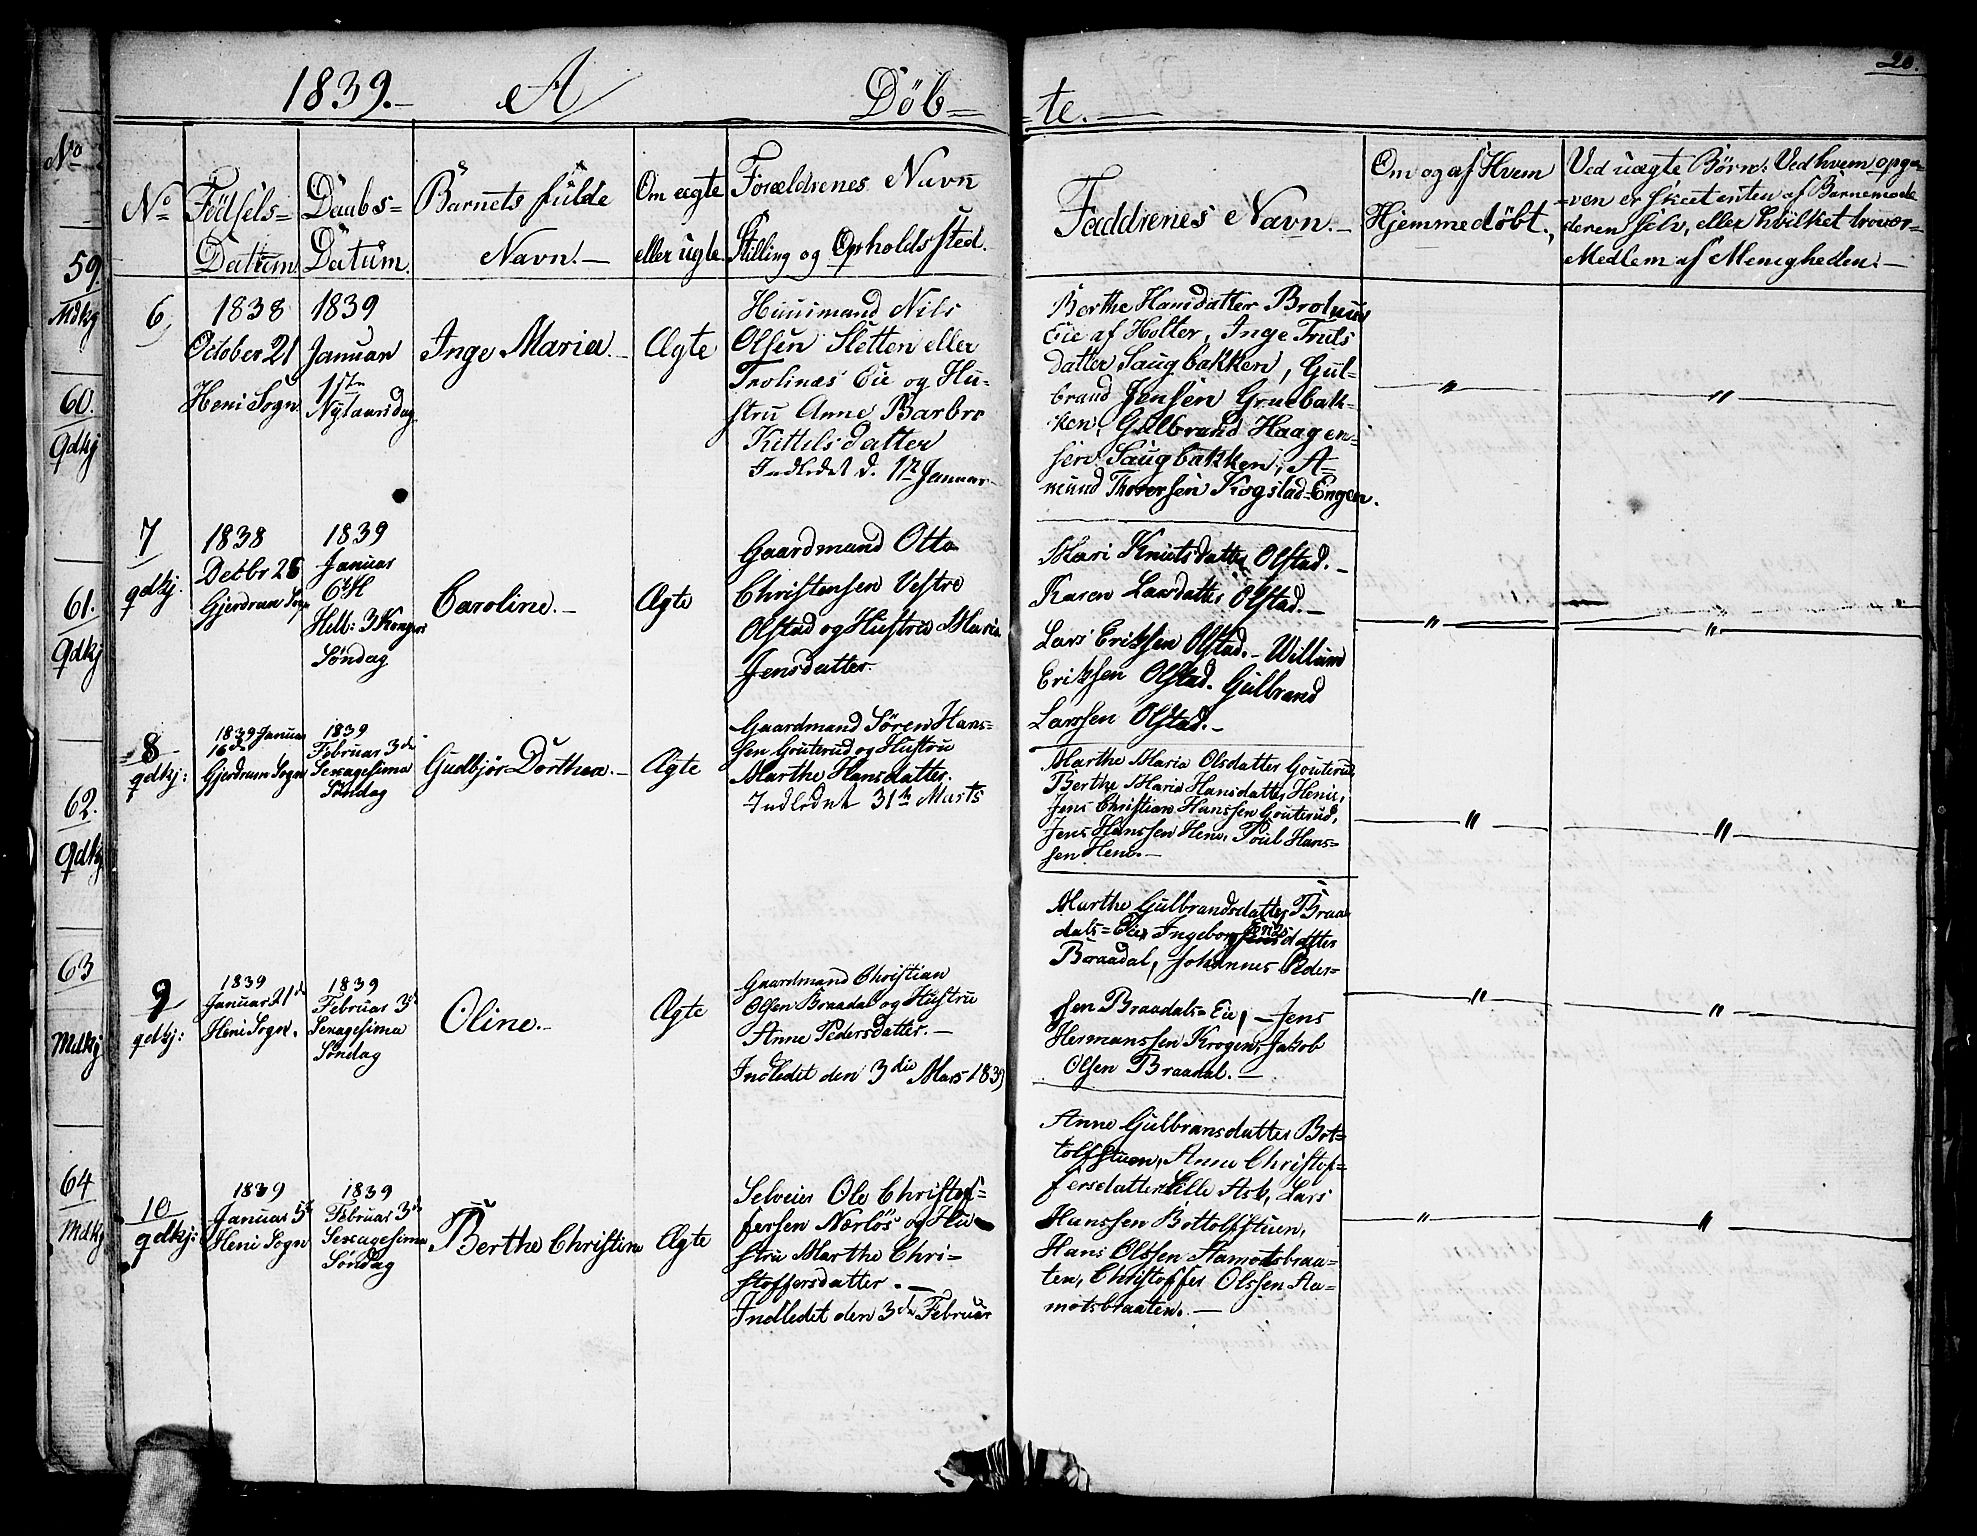 1839.- A Döb=
=te.-
20.
No
59.
Mdkj
60.
Qdkj
61.
Qdkj
62.
Qdkj
63
Mdkj
64
Mdkj
No
Födsels=
Datum
Daabs=
Datum.
Barnets fulde
Navn.-
Om ægte
eller ugte.
Forældrenes Navn
Stilling og Opholdssted.
Faddrenes Navn.-
Om og af Hvem
Hjemmedöbt.
Ved uægte Børn: Ved hvem opga-
-ven er skeet enten af Barnemod-
deren selv, eller hvilket trovær-
Medlem af Menigheden.-
6
1838
October 21
Heni Sogn
1839
Januar
1ste
Nytaarsdag
Inge Maria.-
Ægte
Huusmand Nils
Olsen Sletten eller
Trolinæs Eie og Hu-
stru Anne Barbro
Kittilsdatter
Indledet d. 1te Januar
Berthe Hansdatter
Eie af Holter, Inge Truls
datter Saugbakken, Gul-
brand Jensen Gruebak-
ken, Gulbrand Haagen-
sen Saugbakken, A-
mund Thoersen Kogstad-Engen.
"
"
7
qdkj.
1838
Decbr 26
Gjerdrum Sogn
1839
Januar
6te
Hell: 3 Konger
Söndag
Caroline.-
Ægte
Gaardmand Otto
Christensen Vestre
Olstad og Hustru Maria
Jensdatter.
Mari Knutsdatter Olstad.-
Karen Larsdatter Olstad.-
Lars Eriksen Olstad.- Willum
Eriksen Olstad. Gulbrand
Larssen Olstad.-
"
"
8
qdkj:
1839 Januar
16de
Gjerdrum Sogn
1839
Februar 3de
Sexagesima
Söndag
Gudbjör Dorthea.-
Ægte
Gaardmand Sören Hans-
sen Gouterud og Hustru
Marthe Hansdatter.
Indledet 31te Marts
Marthe Maria Olsdatter Gouterud,
Berthe Maria Hansdatter Henie,
Jens Christian Hanssen Gouterud,
Jens Hanssen Heni, Poul Hans=
sen Heni.-
"
"
9
qdkj:
1839
Januar 21de
Heni Sogn.
1839
Februar 3de
Sexagesima
Söndag
Oline.-
Ægte
Gaardmand Christian
Olsen Braadal og Hustru
Anne Pedersdatter.-
Indledet den 3die Mars 1839
Marthe Gulbrandsdatter Braa
dals=Eie, Ingeborg datter
Braadal, Johannes Peder=
sen Braadals=Eie, - Jens
Hermanssen Krogen, Jakob
Olsen Braadal.-
"
"
10
qdkj:
1839
Januar 5te
Heni Sogn
1839
Februar 3de
Sexagesima
Söndag
Berthe Christine
Ægte
Selveier Ole Christof=
fersen Nærlös og Hu
stru Marthe Chri-
stoffersdatter.-
Indledet den 3de Februar
Anne Gulbransdatter Bot=
tolfstuen, Anne Christof=
fersdatter Lille Ask, Lars
Hanssen Bottolfstuen,
Hans Olssen Aamotsbraa-
ten, Christoffer Olssen Aa-
motsbraaten.-
"
"